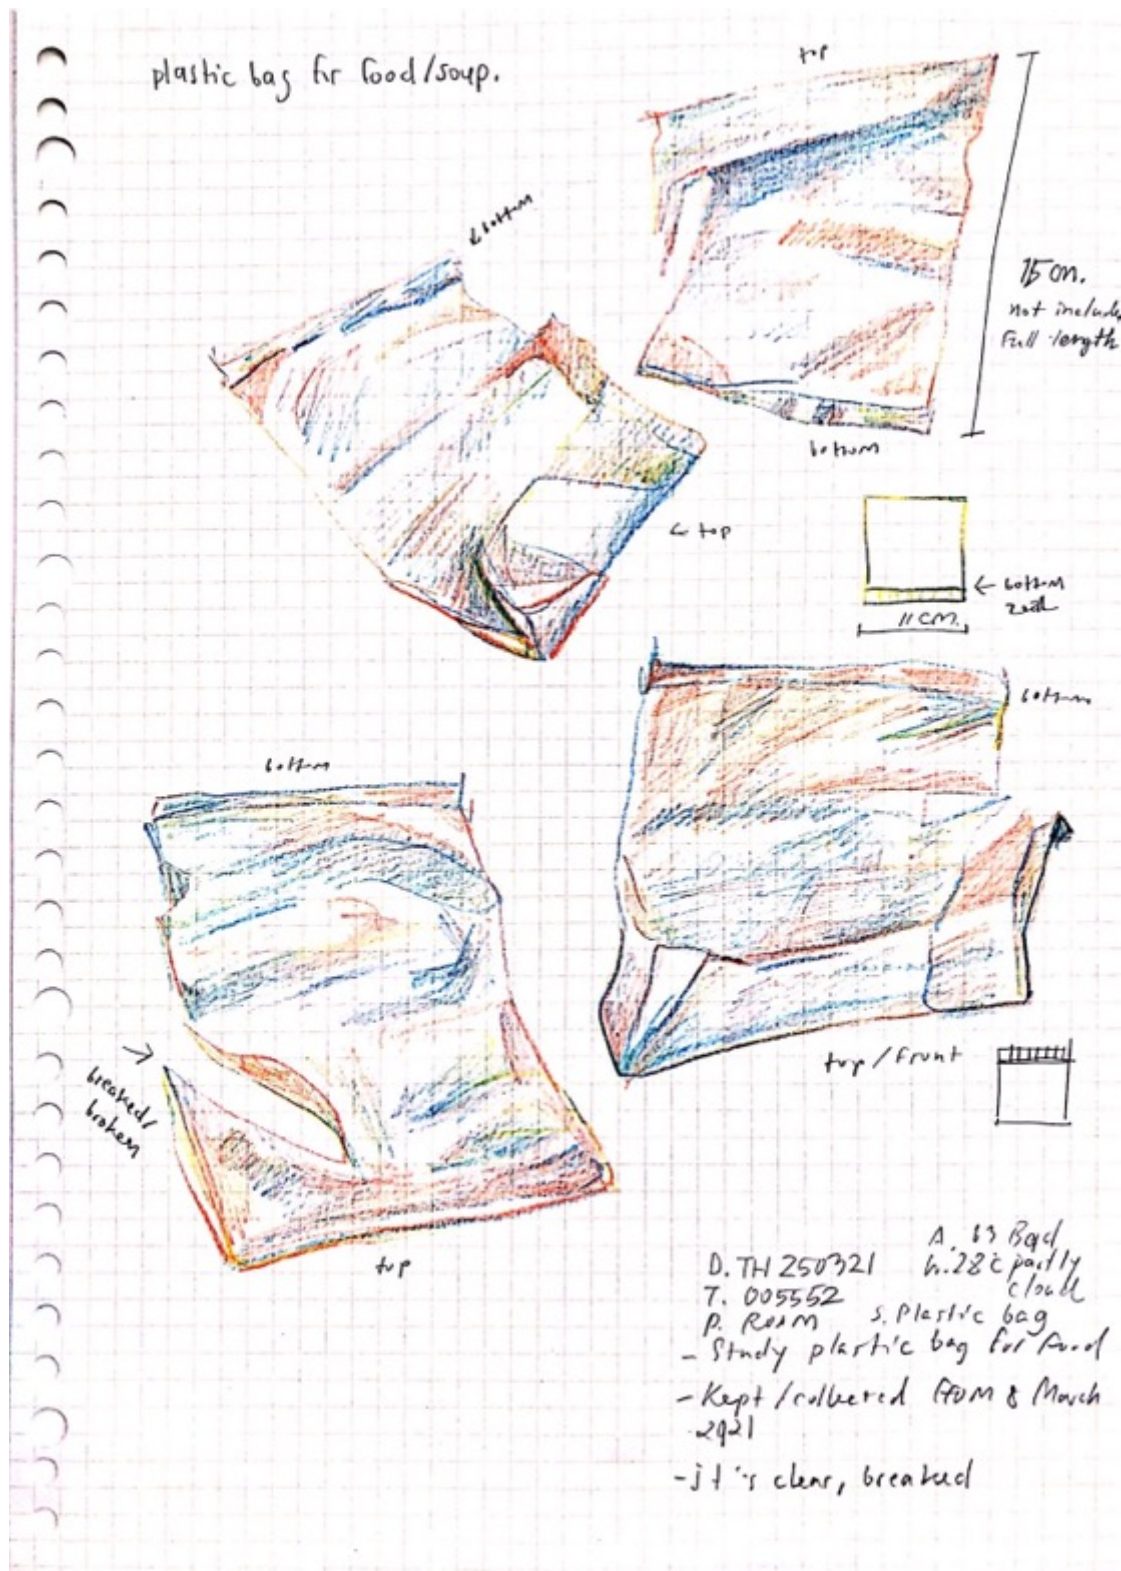 plastic bag for food/soup.
top
←bottom
15 cm.
not include
Full length
bottom
← top
← bottom
11 cm.
bottom
bottom
top/front
breaked/
broken
top
D. TH 250321
T. 005552
P. Room
A. 63 Bqd
h. 28°c partly
cloud
S. Plastic bag
- Study plastic bag for food
- Kept/collected from 8 March
2021
- it's clear, breaked